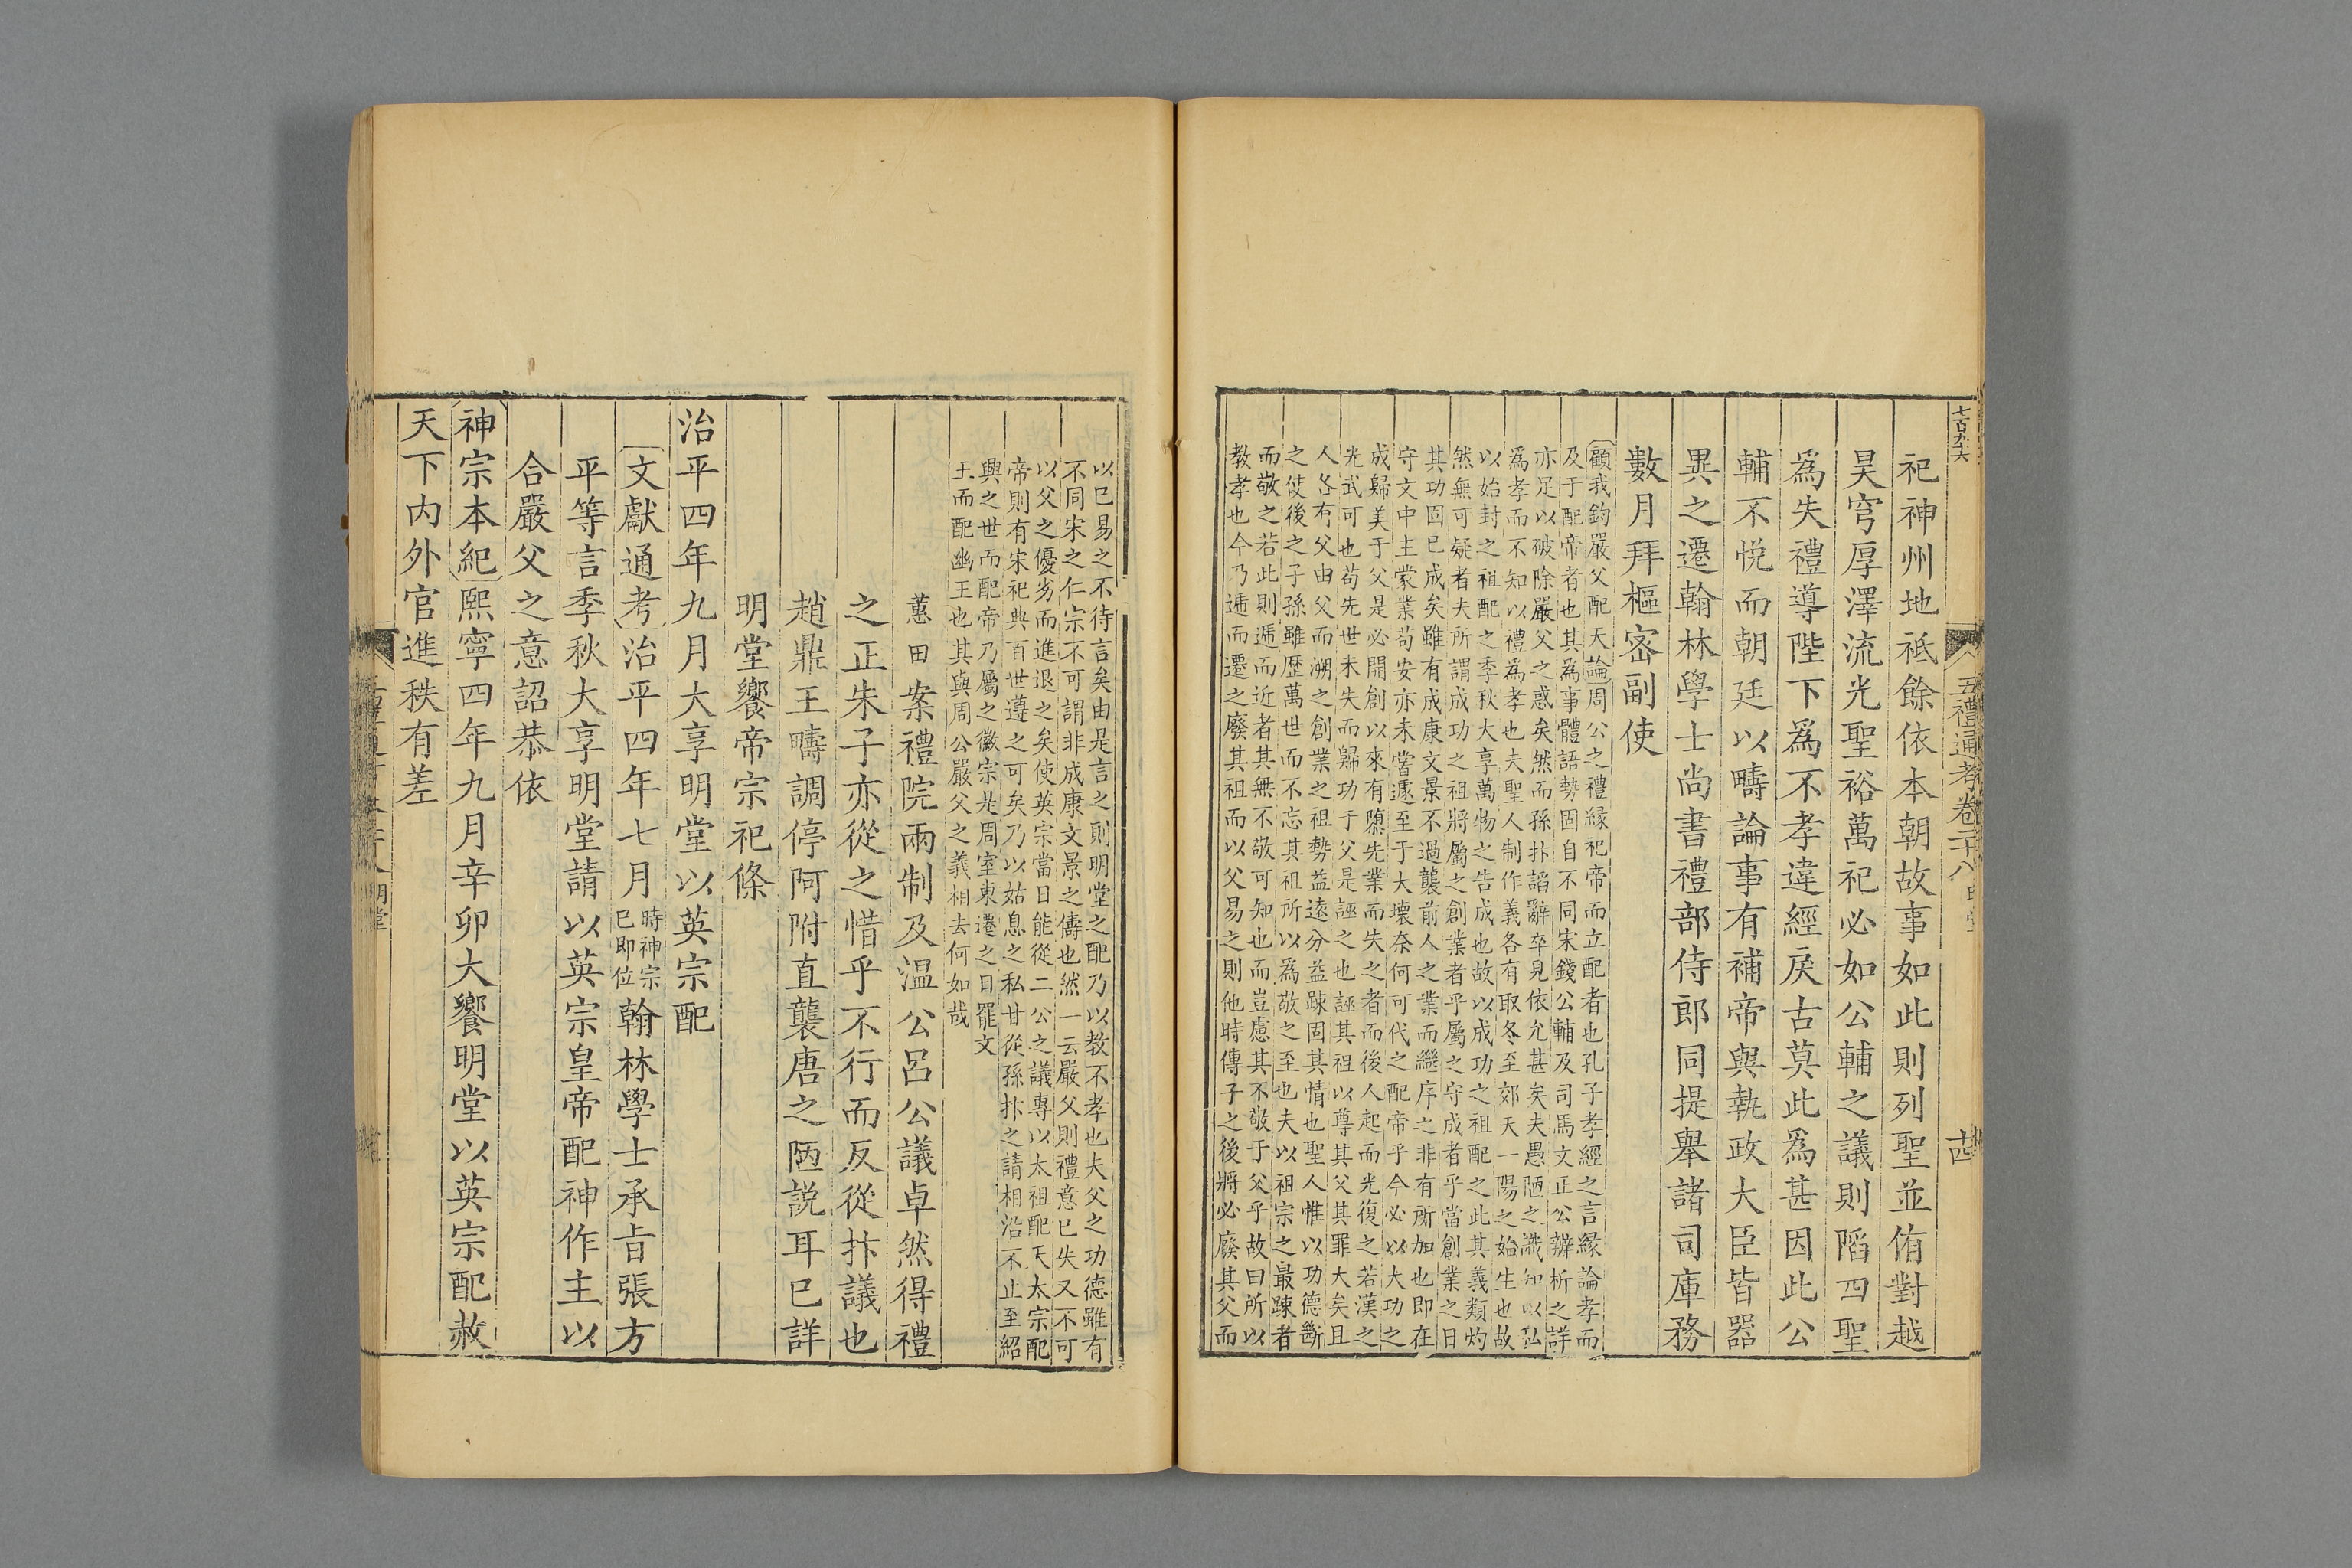 七百九十六
五禮通考卷二十八
十四
祀神州地祇餘依本朝故事如此則列聖並侑對越
昊穹厚澤流光聖裕萬祀必如公輔之議則陷四聖
爲失禮導陛下爲不孝違經戾古莫此爲甚因此公
輔不悅而朝廷以疇論事有補帝與執政大臣皆器
異之遷翰林學士尚書禮部侍郎同提舉諸司庫務
數月拜樞密副使
顧我鈞嚴父配天論周公之禮緣祀帝而立配者也孔子孝經之言緣論孝而
及于配帝者也其爲事體語勢固自不同宋錢公輔及司馬文正公辨析之詳
亦足以破除嚴父之惑矣然而孫抃謟辭卒見依允甚矣夫愚陋之識知以私
爲孝而不知以禮爲孝也夫聖人制作義各有取冬至郊天一陽之始生也故
以始封之祖配之季秋大享萬物之告成也故以成功之祖配之此其義類灼
然無可疑者夫所謂成功之祖將屬之創業者乎屬之守成者乎當創業之日
其功固已成矣雖有成康文景不過襲前人之業而繼序之非有所加也即在
守文中主蒙業苟安亦未嘗遽至于大壞奈何可代之配帝乎今必以大功之
成歸美于父是必開創以來有隳先業而失之者而後人起而光復之若漢之
光武可也苟先世未失而歸功于父是誣之也誣其祖以尊其父其罪大矣且
人各有父由父而溯之創業之祖勢益遠分益踈固其情也聖人惟以功德斷
之使後之子孫雖歷萬世而不忘其祖所以爲敬之至也夫以祖宗之最踈者
而敬之若此則遞而近者其無不敬可知也而豈慮其不敬于父乎故曰所以
教孝也今乃遞而遷之廢其祖而以父易之則他時傳子之後將必廢其父而
以已易之不待言矣由是言之則明堂之配乃以教不孝也夫父之功德雖有
不同宋之仁宗不可謂非成康文景之儔也然一云嚴父則禮意已失又不可
以父之優劣而進退之矣使英宗當日能從二公之議專以太祖配天太宗配
帝則有宋祀典百世遵之可矣乃以姑息之私甘從孫抃之請相沿不止至紹
興之世而配帝乃屬之徽宗是周室東遷之日罷文
王而配幽王也其與周公嚴父之義相去何如哉
蕙田案禮院兩制及温公呂公議卓然得禮
之正朱子亦從之惜乎不行而反從抃議也
趙鼎王疇調停阿附直襲唐之陋說耳已詳
明堂饗帝宗祀條
治平四年九月大享明堂以英宗配
文獻通考治平四年七月時神宗已即位翰林學士承旨張方
平等言季秋大享明堂請以英宗皇帝配神作主以
合嚴父之意詔恭依
神宗本紀熙寧四年九月辛卯大饗明堂以英宗配赦
天下内外官進秩有差
明堂